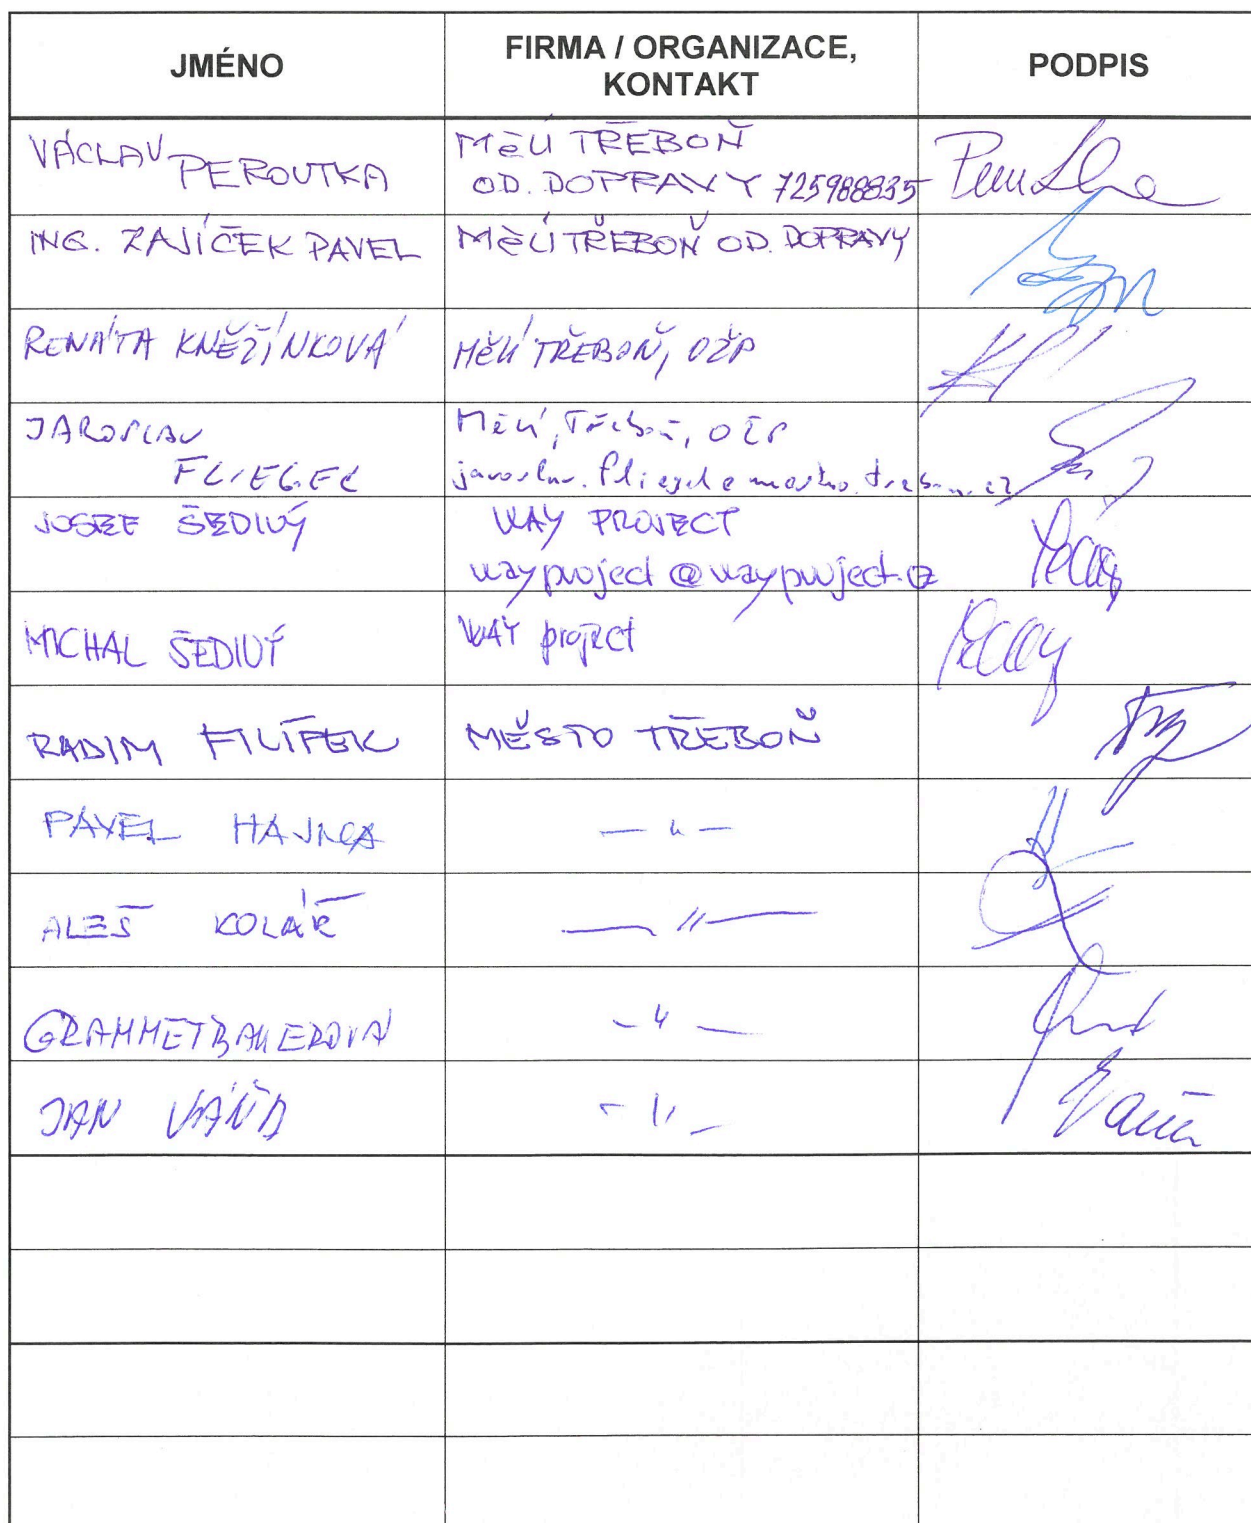 JMÉNO
FIRMA / ORGANIZACE,
KONTAKT
PODPIS
VÁCLAV PEROUTKA
MěÚ TŘEBOŇ
OD. DOPRAVY 725988835
ING. ZAJÍČEK PAVEL
MěÚ TŘEBOŇ OD. DOPRAVY
RENÁTA KNĚŽÍNKOVÁ
MěÚ TŘEBOŇ, OŽP
JAROSLAV
FLIEGEL
MěÚ, Třeboň, OŽP
jaroslav.fliegel@mesto.trebon.cz
JOSEF ŠEDIVÝ
WAY PROJECT
wayproject@wayproject.cz
MICHAL ŠEDIVÝ
WAY project
RADIM FILÍPEK
MĚSTO TŘEBOŇ
PAVEL HAJNA
— " —
ALEŠ KOLÁŘ
— " —
GRAMMETBAUEROVÁ
— " —
JAN VÁŇA
— " —